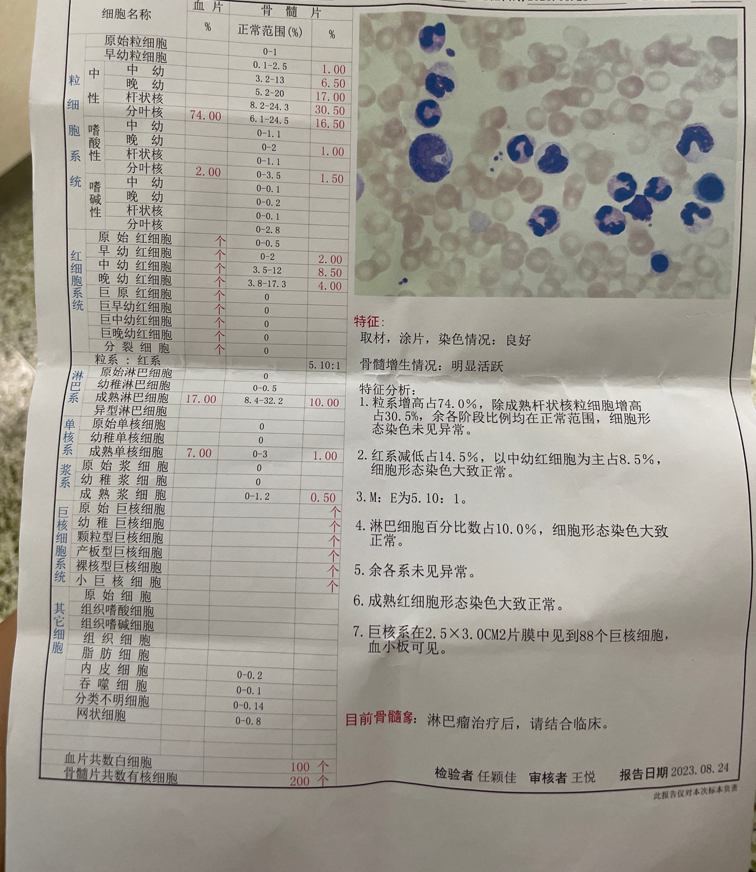 细胞名称 血片 骨髓片
% 正常范围(%) %
粒细胞系统
原始粒细胞 0-1
早幼粒细胞 0.1-2.5 1.00
中性 中幼 3.2-13 6.50
晚幼 5.2-20 17.00
杆状核 8.2-24.3 30.50
分叶核 74.00 6.1-24.5 16.50
嗜酸性 中幼 0-1.1
晚幼 0-2 1.00
杆状核 0-1.1
分叶核 2.00 0-3.5 1.50
嗜碱性 中幼 0-0.1
晚幼 0-0.2
杆状核 0-0.1
分叶核 0-2.8
红细胞系统
原始红细胞 个 0-0.5
早幼红细胞 个 0-2 2.00
中幼红细胞 个 3.5-12 8.50
晚幼红细胞 个 3.8-17.3 4.00
巨原红细胞 个 0
巨早幼红细胞 个 0
巨中幼红细胞 个 0
巨晚幼红细胞 个 0
分裂细胞 个 0
粒系:红系 5.10:1
淋巴系
原始淋巴细胞 0
幼稚淋巴细胞 0-0.5
成熟淋巴细胞 17.00 8.4-32.2 10.00
异型淋巴细胞
单核系
原始单核细胞 0
幼稚单核细胞 0
成熟单核细胞 7.00 0-3 1.00
浆系
原始浆细胞 0
幼稚浆细胞 0
成熟浆细胞 0-1.2 0.50
巨核细胞系统
原始巨核细胞 个
幼稚巨核细胞 个
颗粒型巨核细胞 个
产板型巨核细胞 个
裸核型巨核细胞 个
小巨核细胞 个
其它细胞
原始细胞
组织嗜酸细胞
组织嗜碱细胞
组织细胞
脂肪细胞
内皮细胞 0-0.2
吞噬细胞 0-0.1
分类不明细胞 0-0.14
网状细胞 0-0.8
血片共数白细胞 100 个
骨髓片共数有核细胞 200 个
特征:
取材,涂片,染色情况:良好
骨髓增生情况:明显活跃
特征分析:
1.粒系增高占74.0%,除成熟杆状核粒细胞增高
占30.5%,余各阶段比例均在正常范围,细胞形
态染色未见异常。
2.红系减低占14.5%,以中幼红细胞为主占8.5%,
细胞形态染色大致正常。
3.M:E为5.10:1。
4.淋巴细胞百分比数占10.0%,细胞形态染色大致
正常。
5.余各系未见异常。
6.成熟红细胞形态染色大致正常。
7.巨核系在2.5×3.0CM2片膜中见到88个巨核细胞,
血小板可见。
目前骨髓象:淋巴瘤治疗后,请结合临床。
检验者 任颖佳 审核者 王悦 报告日期 2023.08.24
此报告仅对本次标本负责